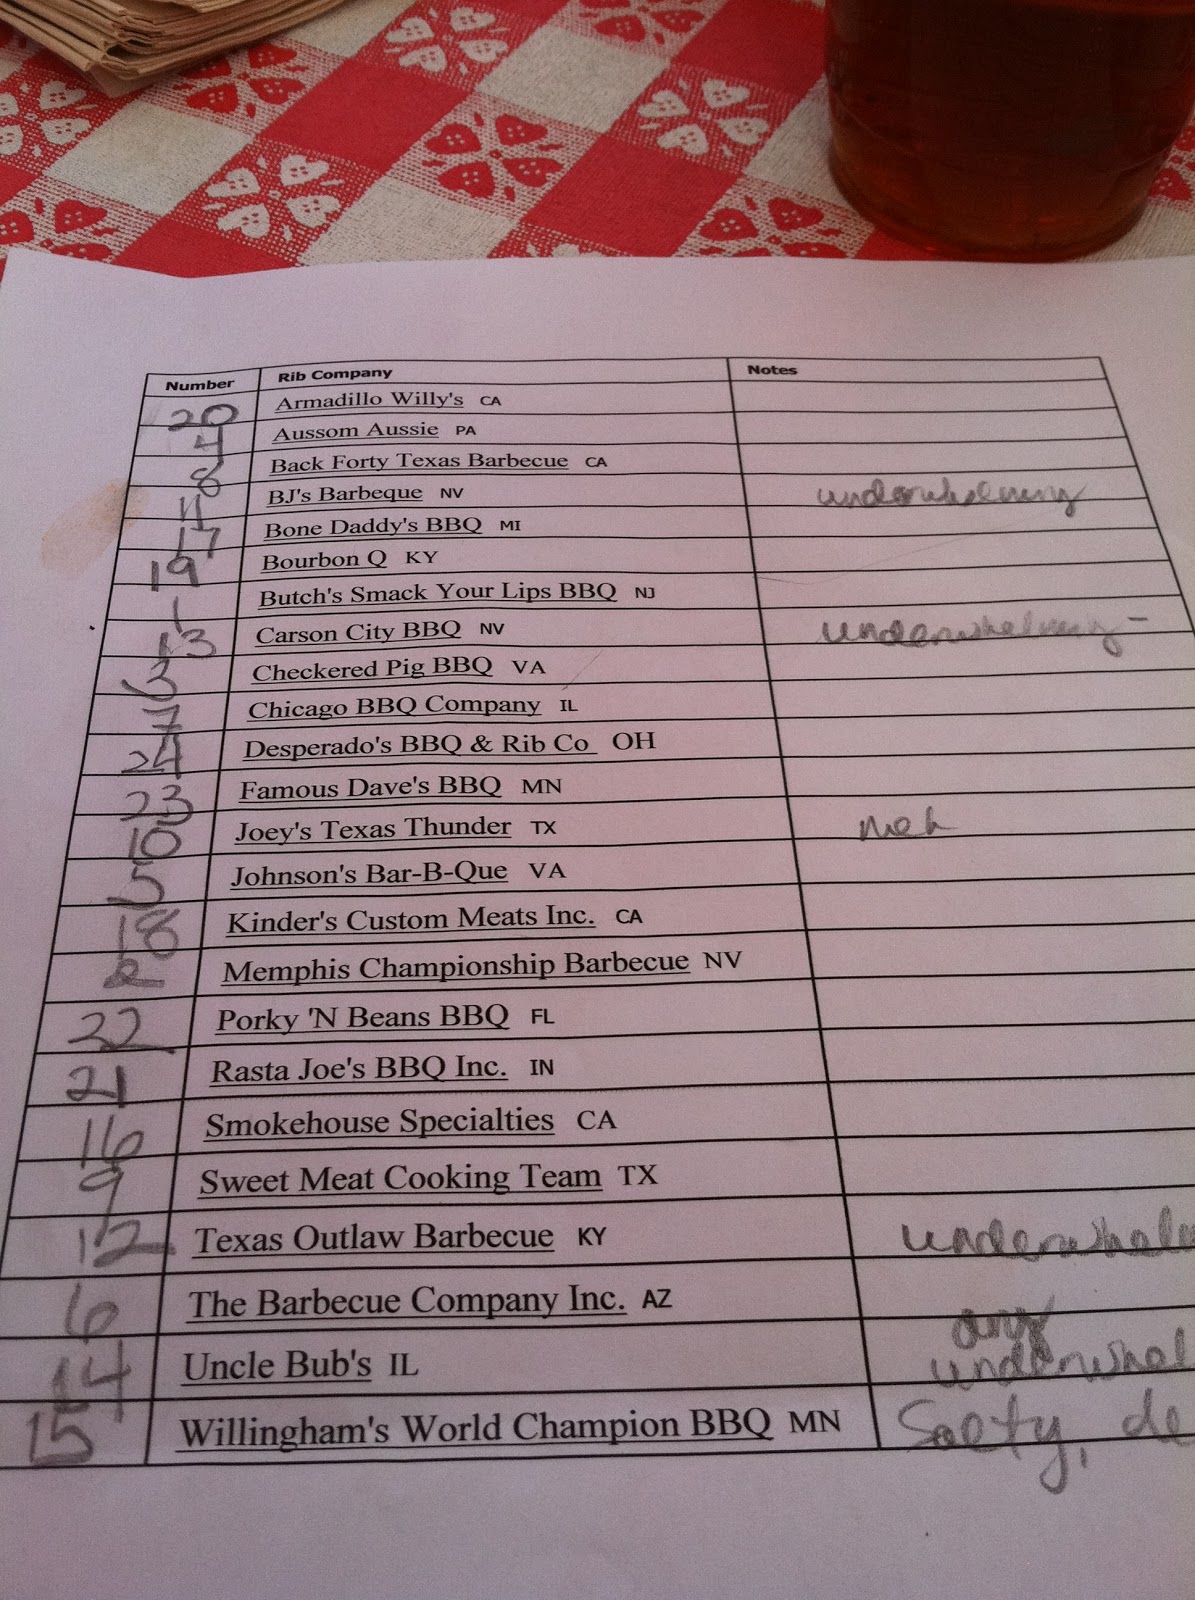 Number Rib Company Notes
20 Armadillo Willy's CA
4 Aussom Aussie PA
8 Back Forty Texas Barbecue CA
11 BJ's Barbeque NV underwhelming
17 Bone Daddy's BBQ MI
19 Bourbon Q KY
1 Butch's Smack Your Lips BBQ NJ
13 Carson City BBQ NV underwhelming -
3 Checkered Pig BBQ VA
7 Chicago BBQ Company IL
24 Desperado's BBQ & Rib Co OH
23 Famous Dave's BBQ MN
10 Joey's Texas Thunder TX meh
5 Johnson's Bar-B-Que VA
18 Kinder's Custom Meats Inc. CA
2 Memphis Championship Barbecue NV
22 Porky 'N Beans BBQ FL
21 Rasta Joe's BBQ Inc. IN
16 Smokehouse Specialties CA
9 Sweet Meat Cooking Team TX
12 Texas Outlaw Barbecue KY underwhelm
6 The Barbecue Company Inc. AZ
14 Uncle Bub's IL underwhel
15 Willingham's World Champion BBQ MN Salty, de